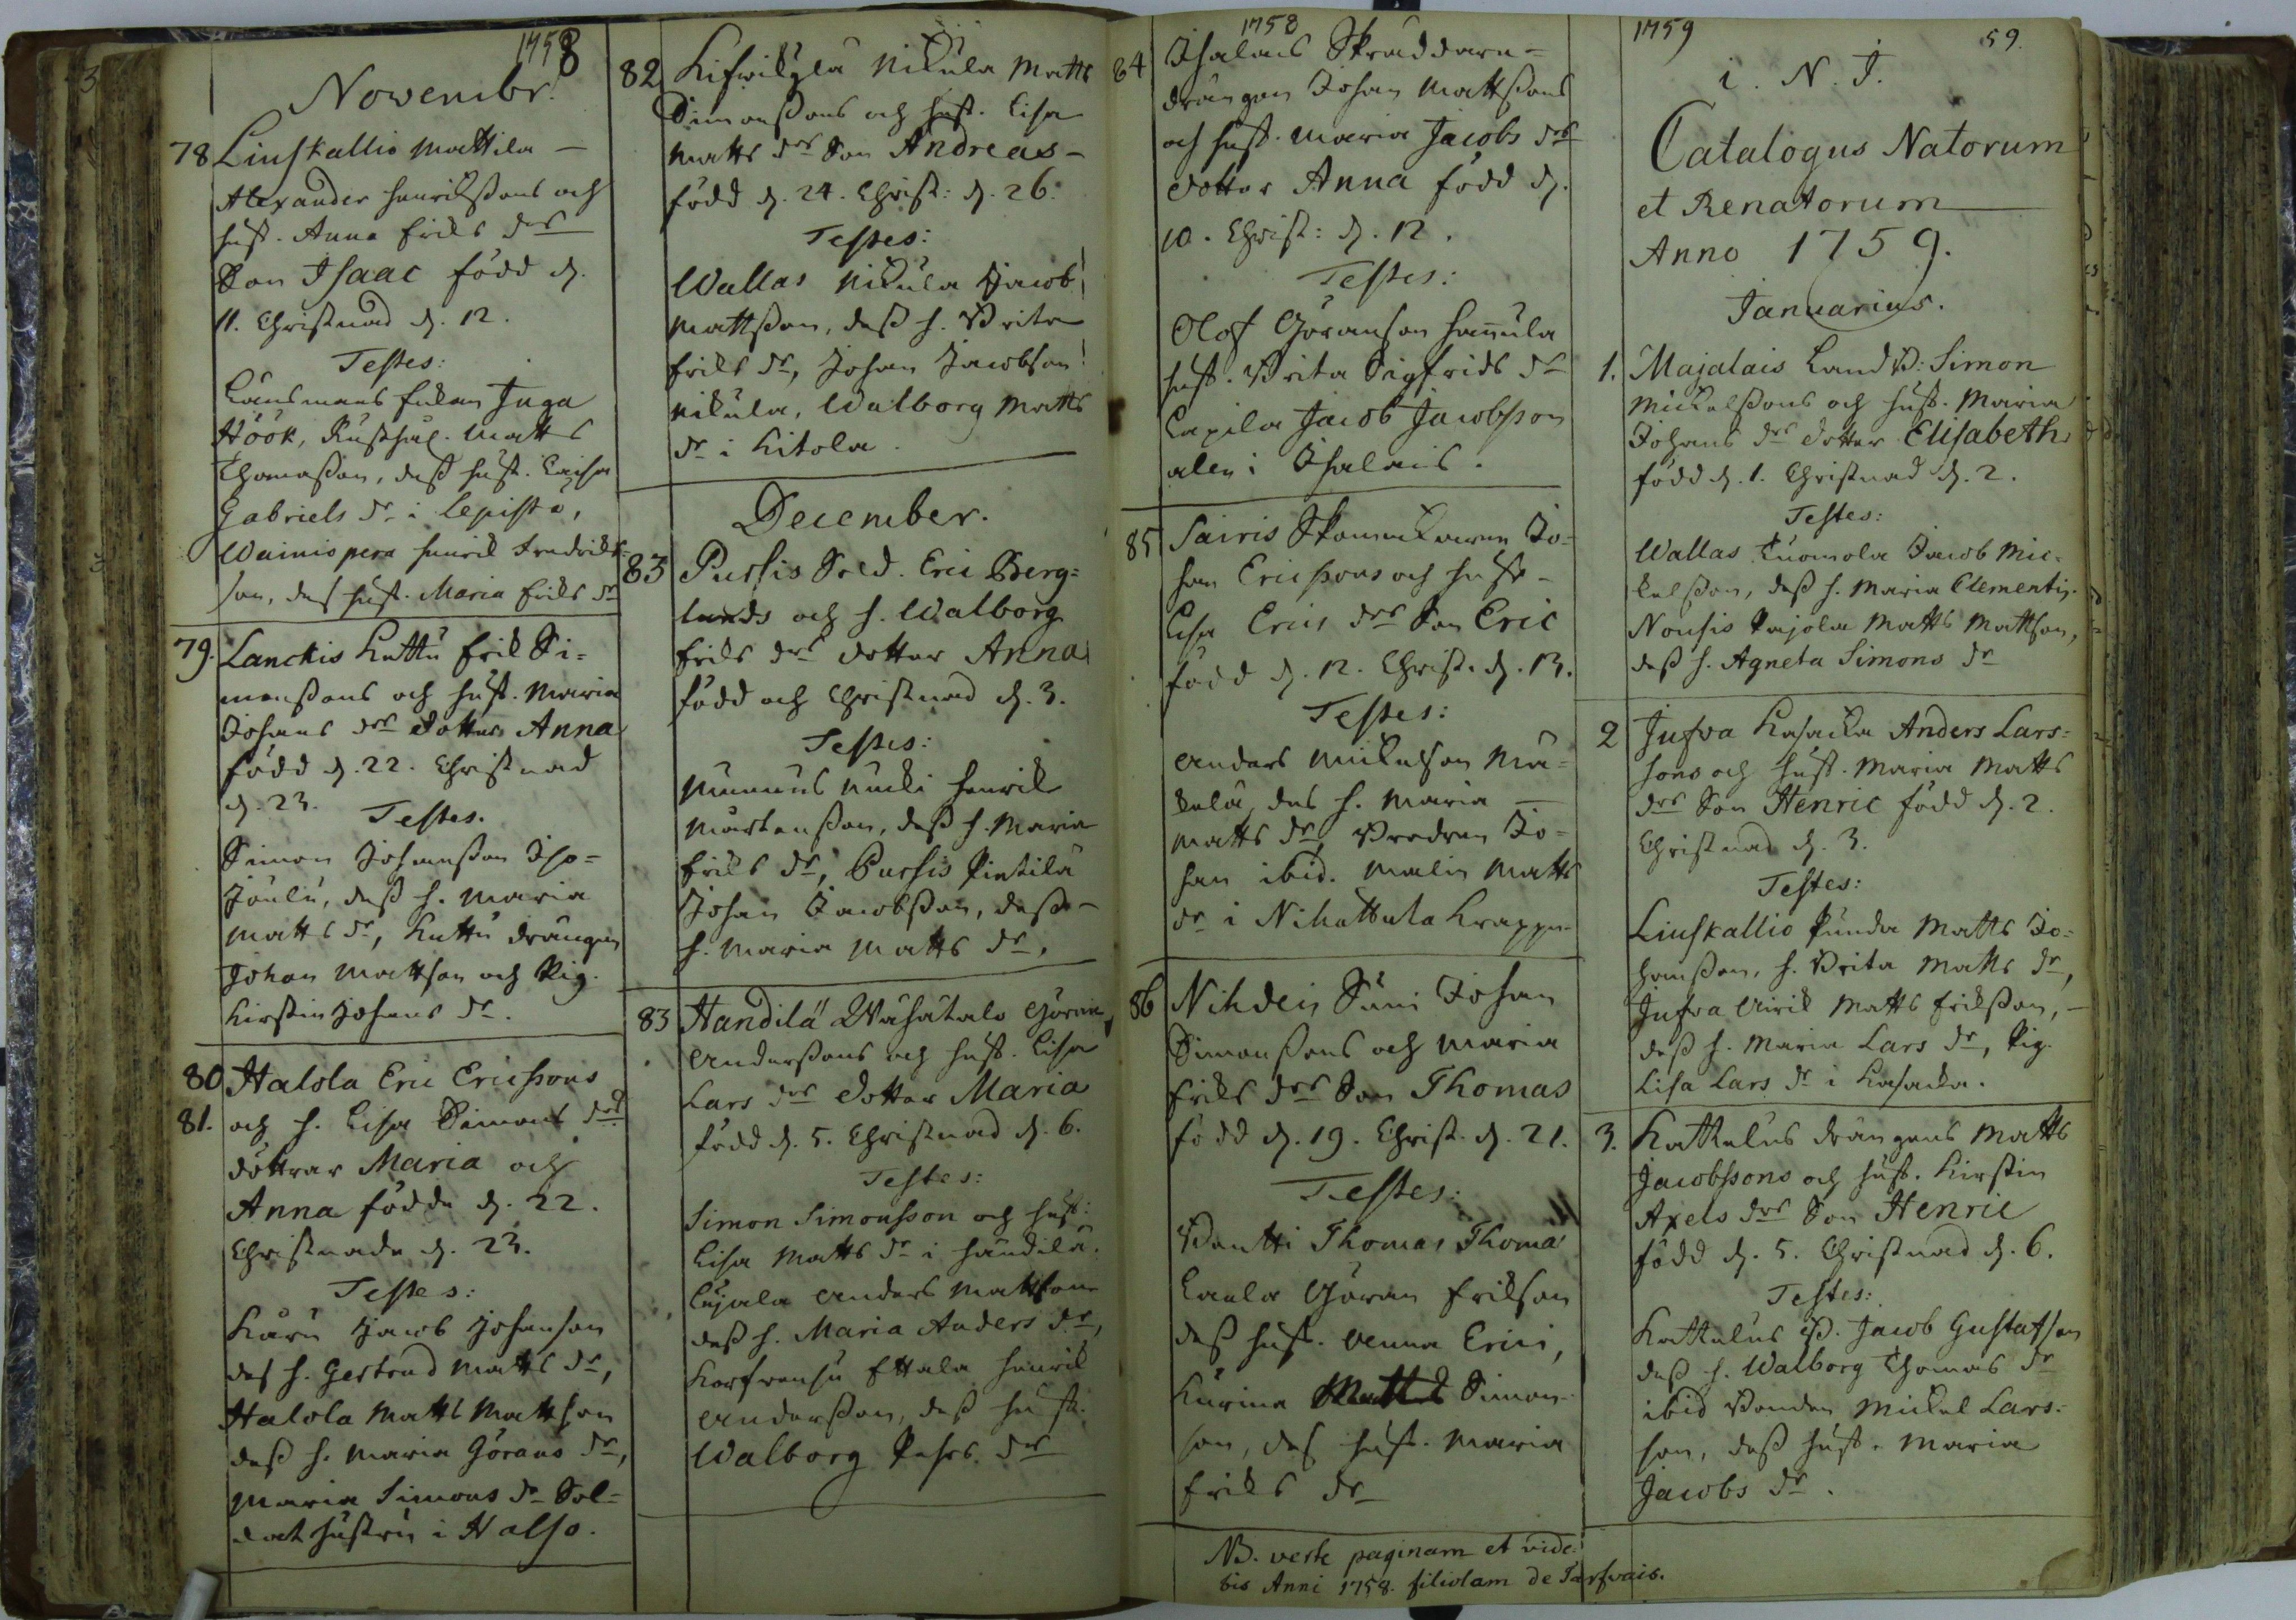 1758
Novembr.
78 Liuskallio Mattila –
Alexander Henrikssons och
hust. Anna Eriks drs
Son Isaac född d.
11. Christnad d. 12.
Testes:
Länsmans Inga
Höök, Rusthål. Matts
Thomasson, dess hust. Caisa
Gabriels dr i Lepistö,
Wainiopera Henrik Fredriks-
son, des hust. Maria Eriks dr
79. Lanckis Kuttu Erik Si=
monssons och hust. Maria
Johans drs dotter Anna
född d. 22. Christnad
d. 23. Testes.
Simon Johansson Iso=
Joulu, dess h. Maria
Matts dr, Kuttu drängen
Johan Mattson och Pig.
Kirstin Johans dr.
80 Halola Eric Ericssons
81. och h. Lisa Simons drs
döttrar Maria och
Anna födde d. 22.
Christnade d. 23.
Testes:
Karu Jacob Johanson
des h. Gertrud Matts dr,
Halola Matts Mattson
dess h. Maria Görans dr,
Maria Simons dr Sol=
dat hustru i Halso.
82 Kifwikylä Nikula Matts
Simonssons och hust. Lisa
Matts drs Son Andreas –
född d. 24. Christ: d. 26.
Testes:
Wallas Nikula Jacob
Mattsson, dess h. Brita
Eriks dr, Johan Jacobson
Nikula, Walborg Matts
dr i Kitola.
December.
83 Pursis Sold. Eric Berg=
lunds och h. Walborg
Eriks drs dotter Anna
född och Christnad d. 3.
Testes:
Nucki Henrik
Mårtensson, dess h. Maria
Eriks dr, Pursis Pintilä
Johan Jacobsson, dess –
h. Maria Matts dr,
83 Handilä Wähätalo Göran
Anderssons och hust. Lisa
Lars drs dotter Maria
född d. 5. Christnad d. 6.
Testes:
Simon Simonsson och hust:
Lisa Matts dr i Handilä.
Cujala Anders Mattson
dess h. Maria Anders dr,
Korfwensu Ettala Henrik
Andersson, dess hust.
Walborg Pehrs. dr
1758
84 Ihalais Skräddare =
drängen Johan Mattssons
och hust. Maria Jacobs drs
dotter Anna född d.
10. Christ: d. 12.
Testes:
Olof Göranson Hannula
hust. Brita Sigfrids dr
Capila Jacob Jacobsson
alla i Ihalais.
85 Sairis Skomakaren Jo=
han Ericssons och hust –
Lisa Erics drs Son Eric
född d. 12. Christ. d. 13.
Testes:
Anders Mickelson Mä=
kelä, des h. Maria –
Matts dr, Brodren Jo=
han ibid. Malin Matts
dr i Nihattula Krappe.
86 Nihdeis Suni Johan
Simonssons och Maria
Eriks drs Son Thomas
född d. 19. Christ. d. 21.
Testes:
Pantti Thomas Thomæ
Laula Göran Erikson
dess hust. Anna Erici,
Kurina Simon-
son, des hust. Maria
Eriks dr
NB. verte paginam et vide=
bis Anni 1758. filiolam de Tarfvais.
1759 59.
i. N. J.
Catalogus Natorum
et Renatorum
Anno 1759.
Januarius.
1. Majalais Land B: Simon
Mickelssons och hust. Maria
Johans drs dotter Elisabeth
född d. 1. Christnad d. 2.
Testes:
Wallas Tuomola Jacob Mic=
kelsson, dess h. Maria Clementis.
Nousis Pajola Matts Mattson,
dess h. Agneta Simons dr
2 Jufva Kasacka Anders Lars=
sons och hust. Maria Matts
drs Son Henric född d. 2.
Christnad d. 3.
Testes:
Liuskallio Punda Matts Jo=
hansson, h. Brita Matts dr,
Jufva Matts Eriksson, –
dess h. Maria Lars dr, Pig.
Lisa Lars dr i Kasacka.
3. Kattelus drängens Matts
Jacobssons och hust. Kirstin
Axels drs Son Henric
född d. 5. Christnad d. 6.
Testes:
Kattelus B. Jacob Gustafson
dess h. Walborg Thomas dr
ibid Bonden Mickel Lars=
son, dess hust. Maria
Jacobs dr.